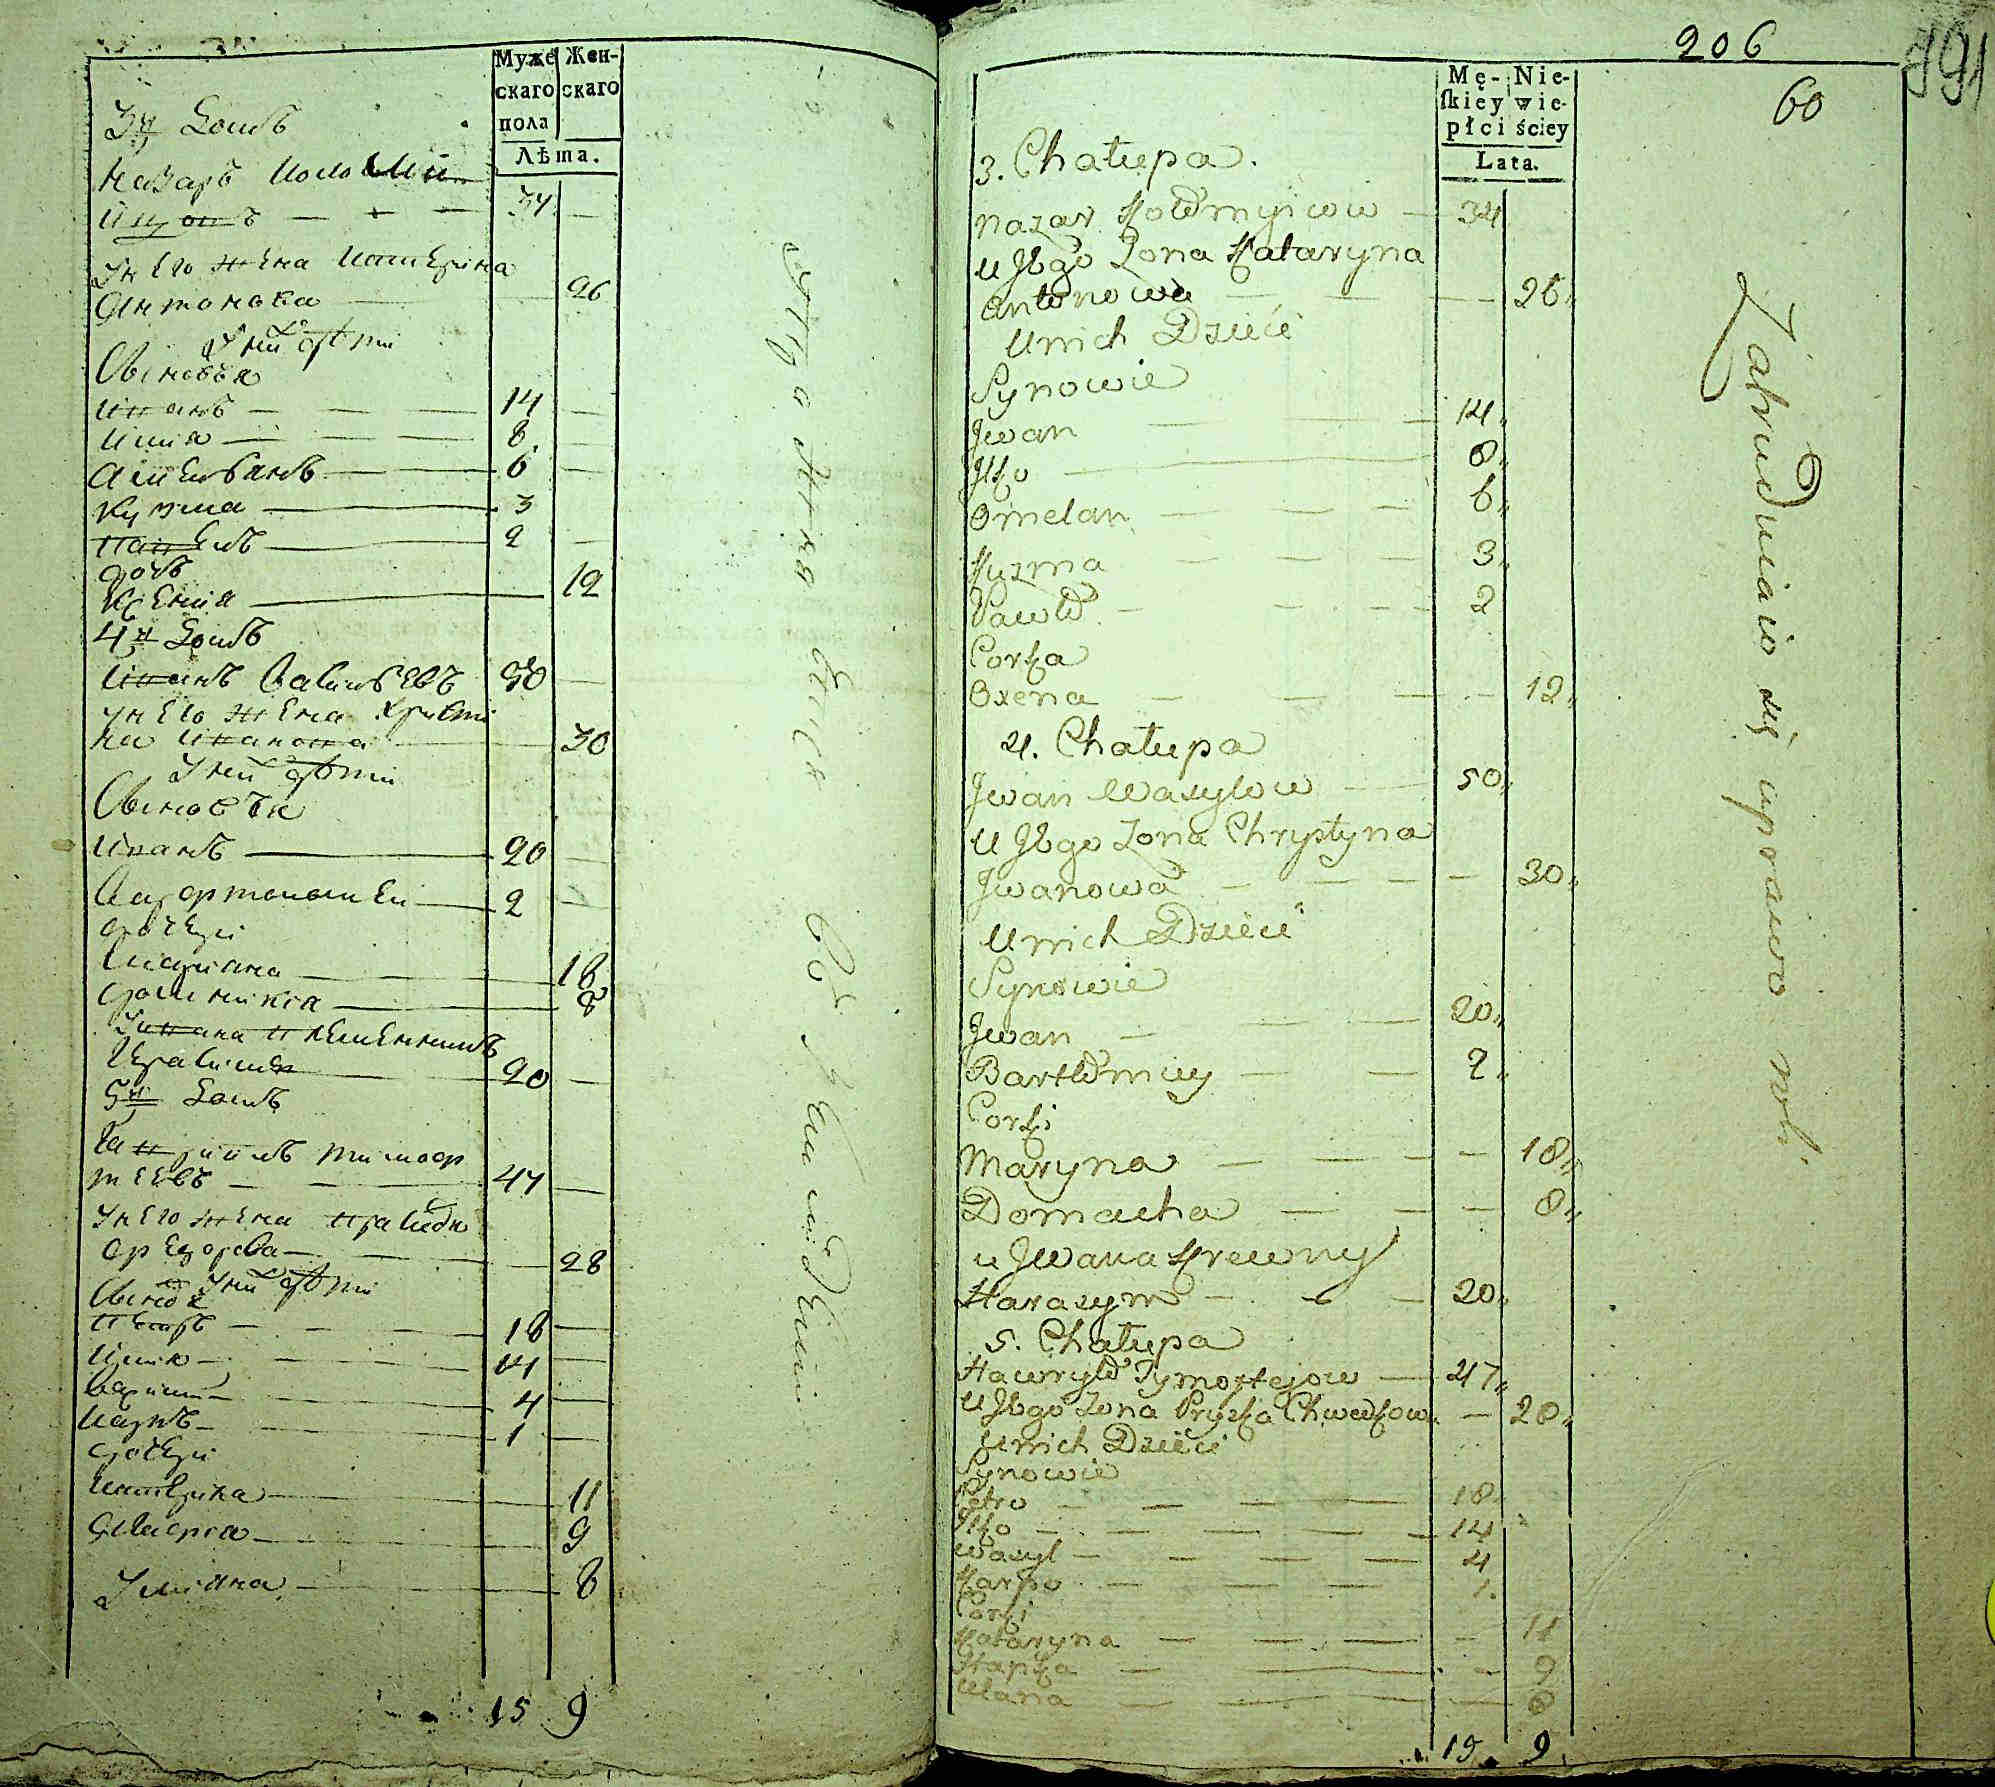 Муже
скаго
пола
Жен-
скаго
Лѣта.
3й Домъ
Назаръ
34
У него жена Катерина
Антонова 26
У ниⷯ дѣти
Сыновья
Иванъ 14
Илия 8
Емельянъ 6
Кузма 3
Павелъ 2
дочь
Ксения 12
4й Домъ
Иванъ Васильевъ 50
У него жена Христи
на Иванова 30
У ниⷯ дѣти
Сыновъя
Иванъ 20
Варфоломѣй 2
дочери
Марiана 18
Домникiя 8
У Ивана племенникъ
Герасимъ 20
5й Домъ
Гаврiилъ Тимоф
теевъ 47
У него жена
Федорова 28
У ниⷯ дѣти
Петръ 18
Илия 14
Василий 4
Карпъ 1
дочери
Катерина 11
Агафiя 9
Улiяна 8
15 9
206
60
191
Mę-
skiey
płci
Nie-
wie-
ściey
Lata.
3. Chałupa.
Nazar Kołomyicow 34
u Jego Zona Kataryna
Antonowa 26
Unich Dzieci
Synowie
Jwan 14
Jlko 8
Omelan 6
Kuzma 3
Pawło 2
Corka
Oxena 12
4. Chałupa
Jwan Wasylow 50
U Jego Zona Chrystyna
Jwanowa 30
Unich Dzieci
Synowie
Jwan 20
Bartłomiey 2
Corki
Maryna 18
Domacha 8
u Jwana Krewny
Harasym 20
5. Chałupa
Hawryło Tymoftejow 47
U Jego Zona Pryska Chwedkowa 28
Unich Dzieci
Synowie
Petro 18
Jlko 14
Wasyl 4
Karpo 1
Corki
Kataryna 11
Hapka 9
Ulana 8
15 9
Zatrudniaio się uprawo roli.